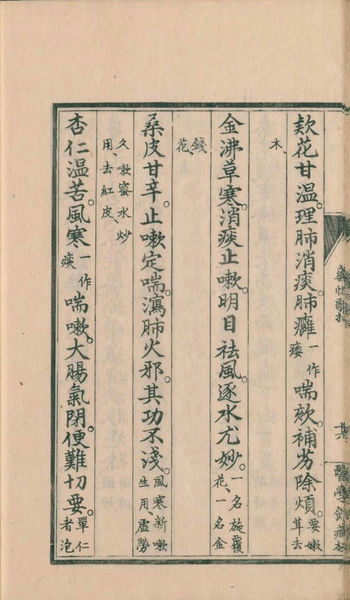 欵花甘溫。理肺消痰。肺癰一作痿喘欬。補劳除煩。要嫩茸去
木、
金沸草寒。消痰止嗽。明目祛風。逐水尤妙。一名旋覆花、一名金
錢花、
桑皮甘辛。止嗽定喘。瀉肺火邪。其功不淺。風寒新嗽生用、虛勞
久嗽蜜水炒用、去紅皮、
杏仁溫苦。風寒一作痰喘嗽。大腸氣閉。便難切要。單仁者泡